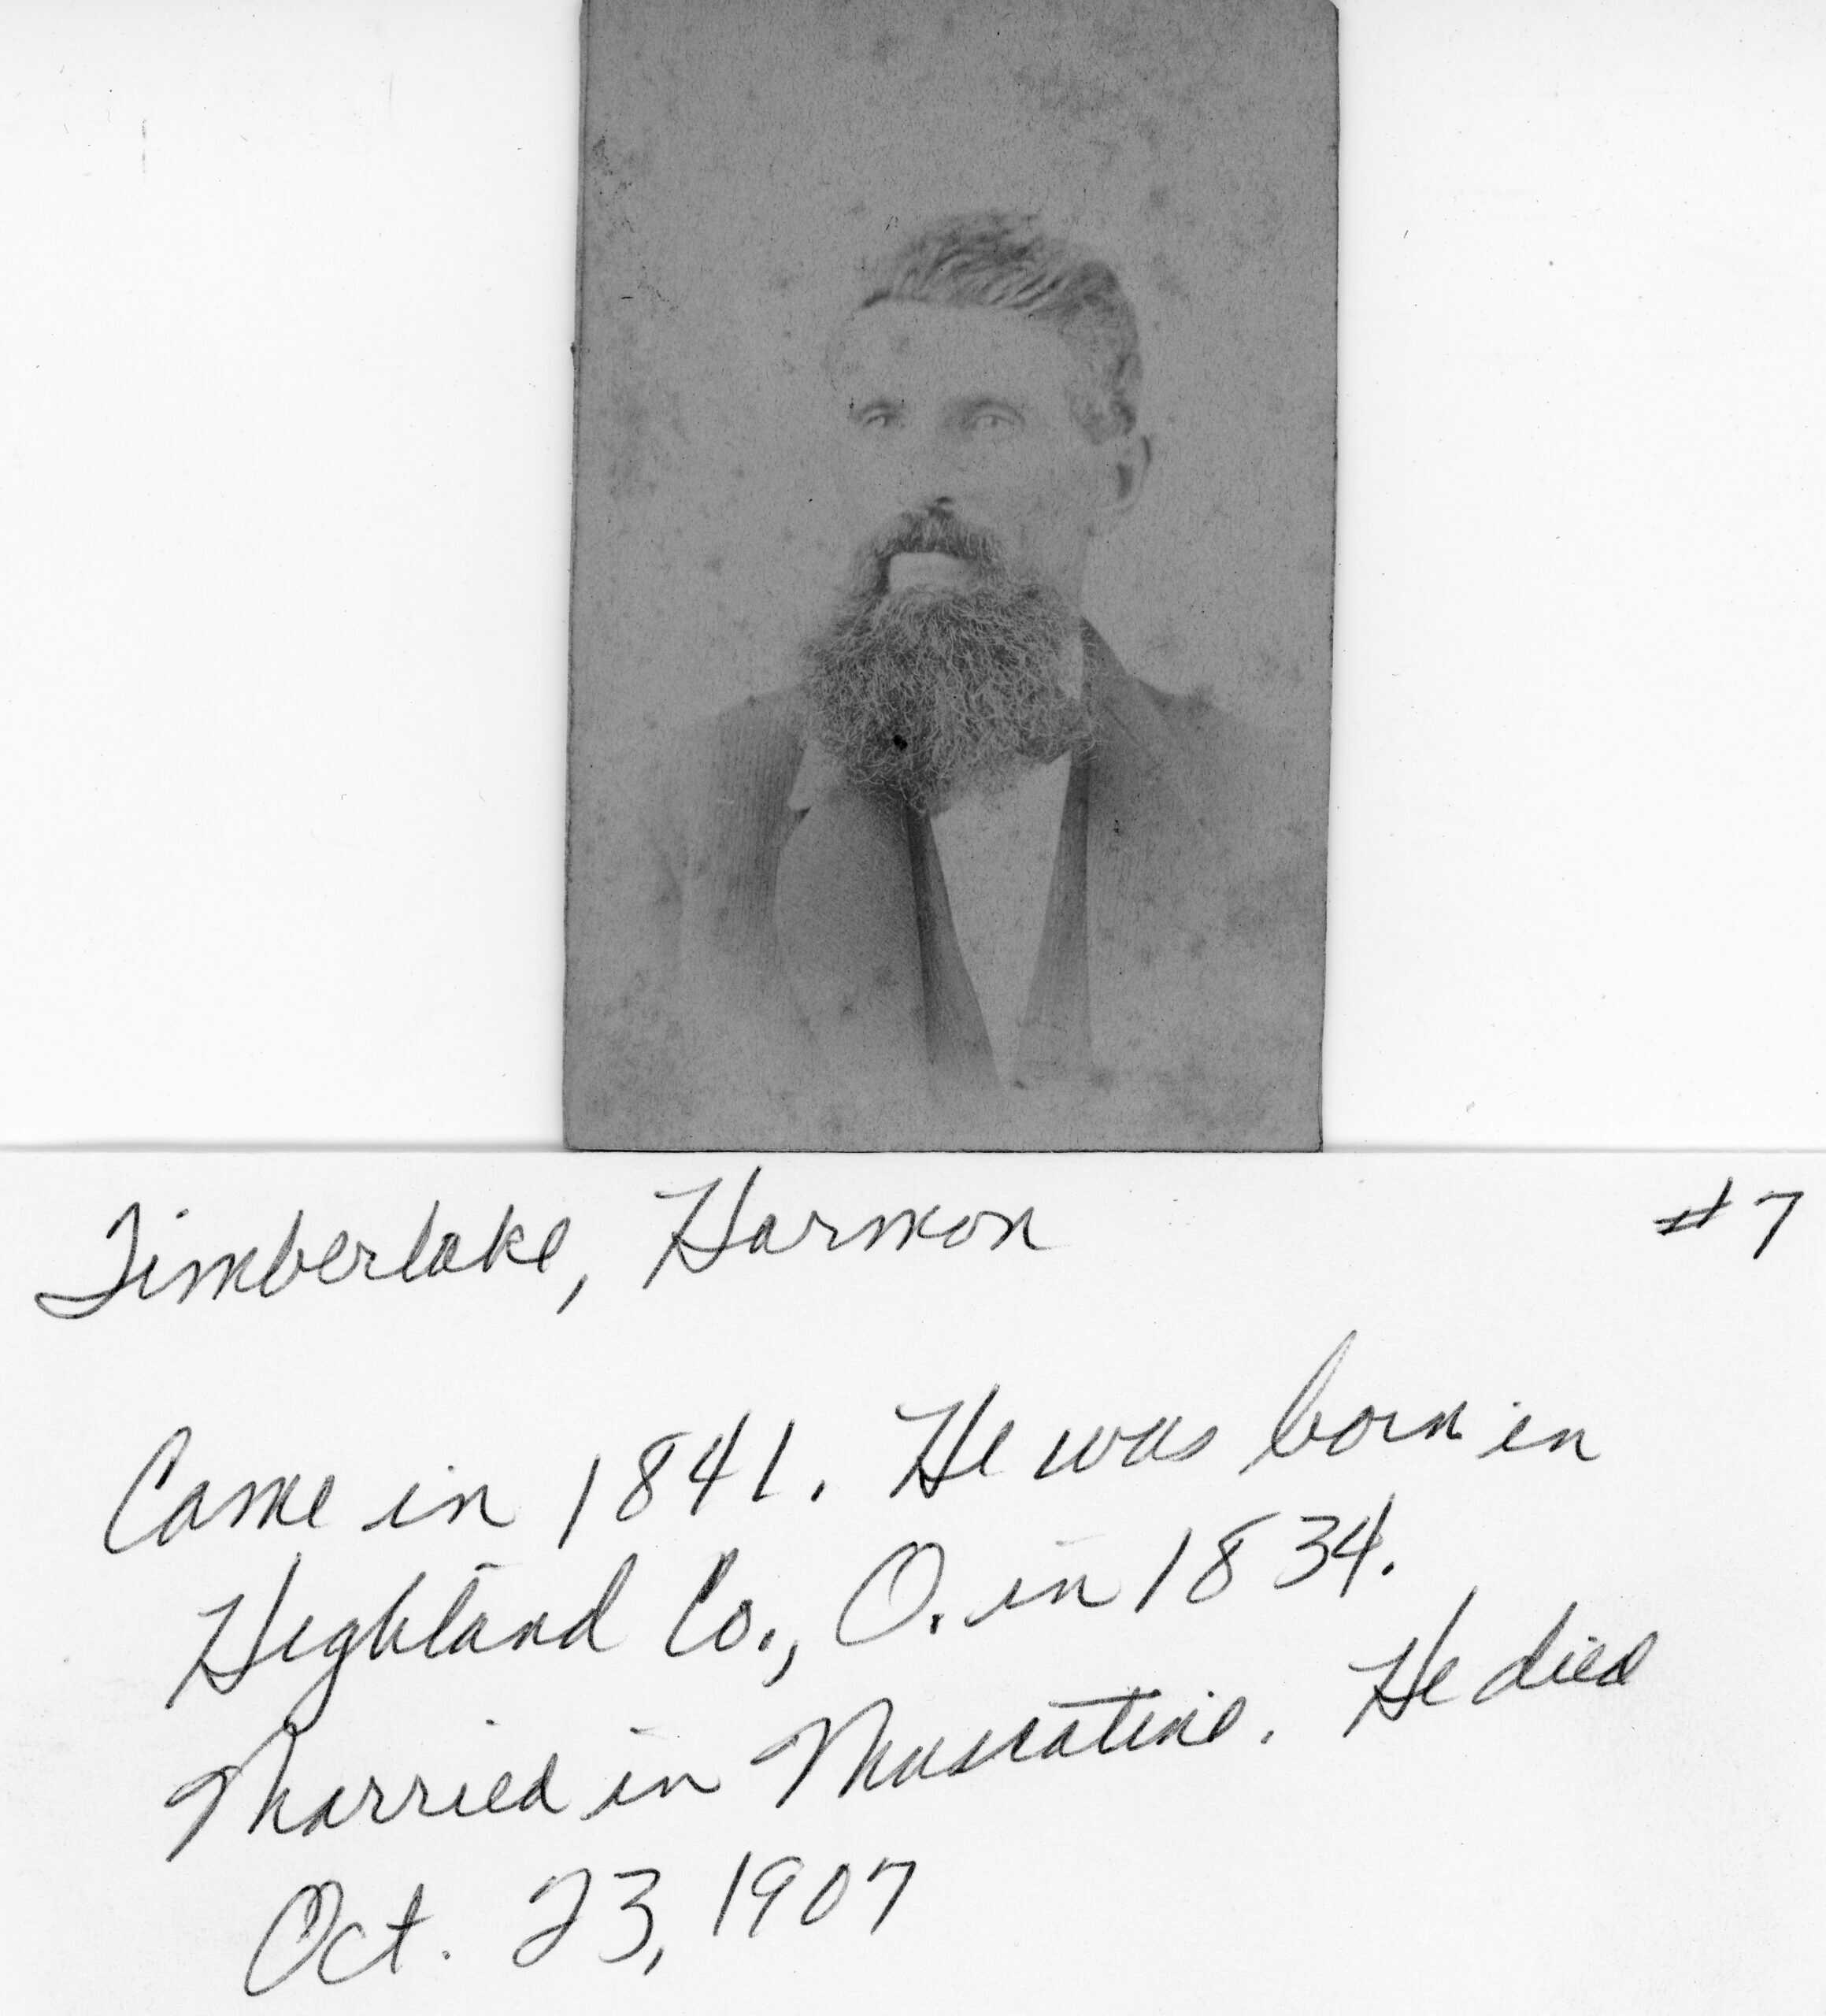 Timberlake, Harmon #7
Came in 1841. He was born in
Highland Co., O. in 1834.
Married in Muscatine. He died
Oct. 23, 1907